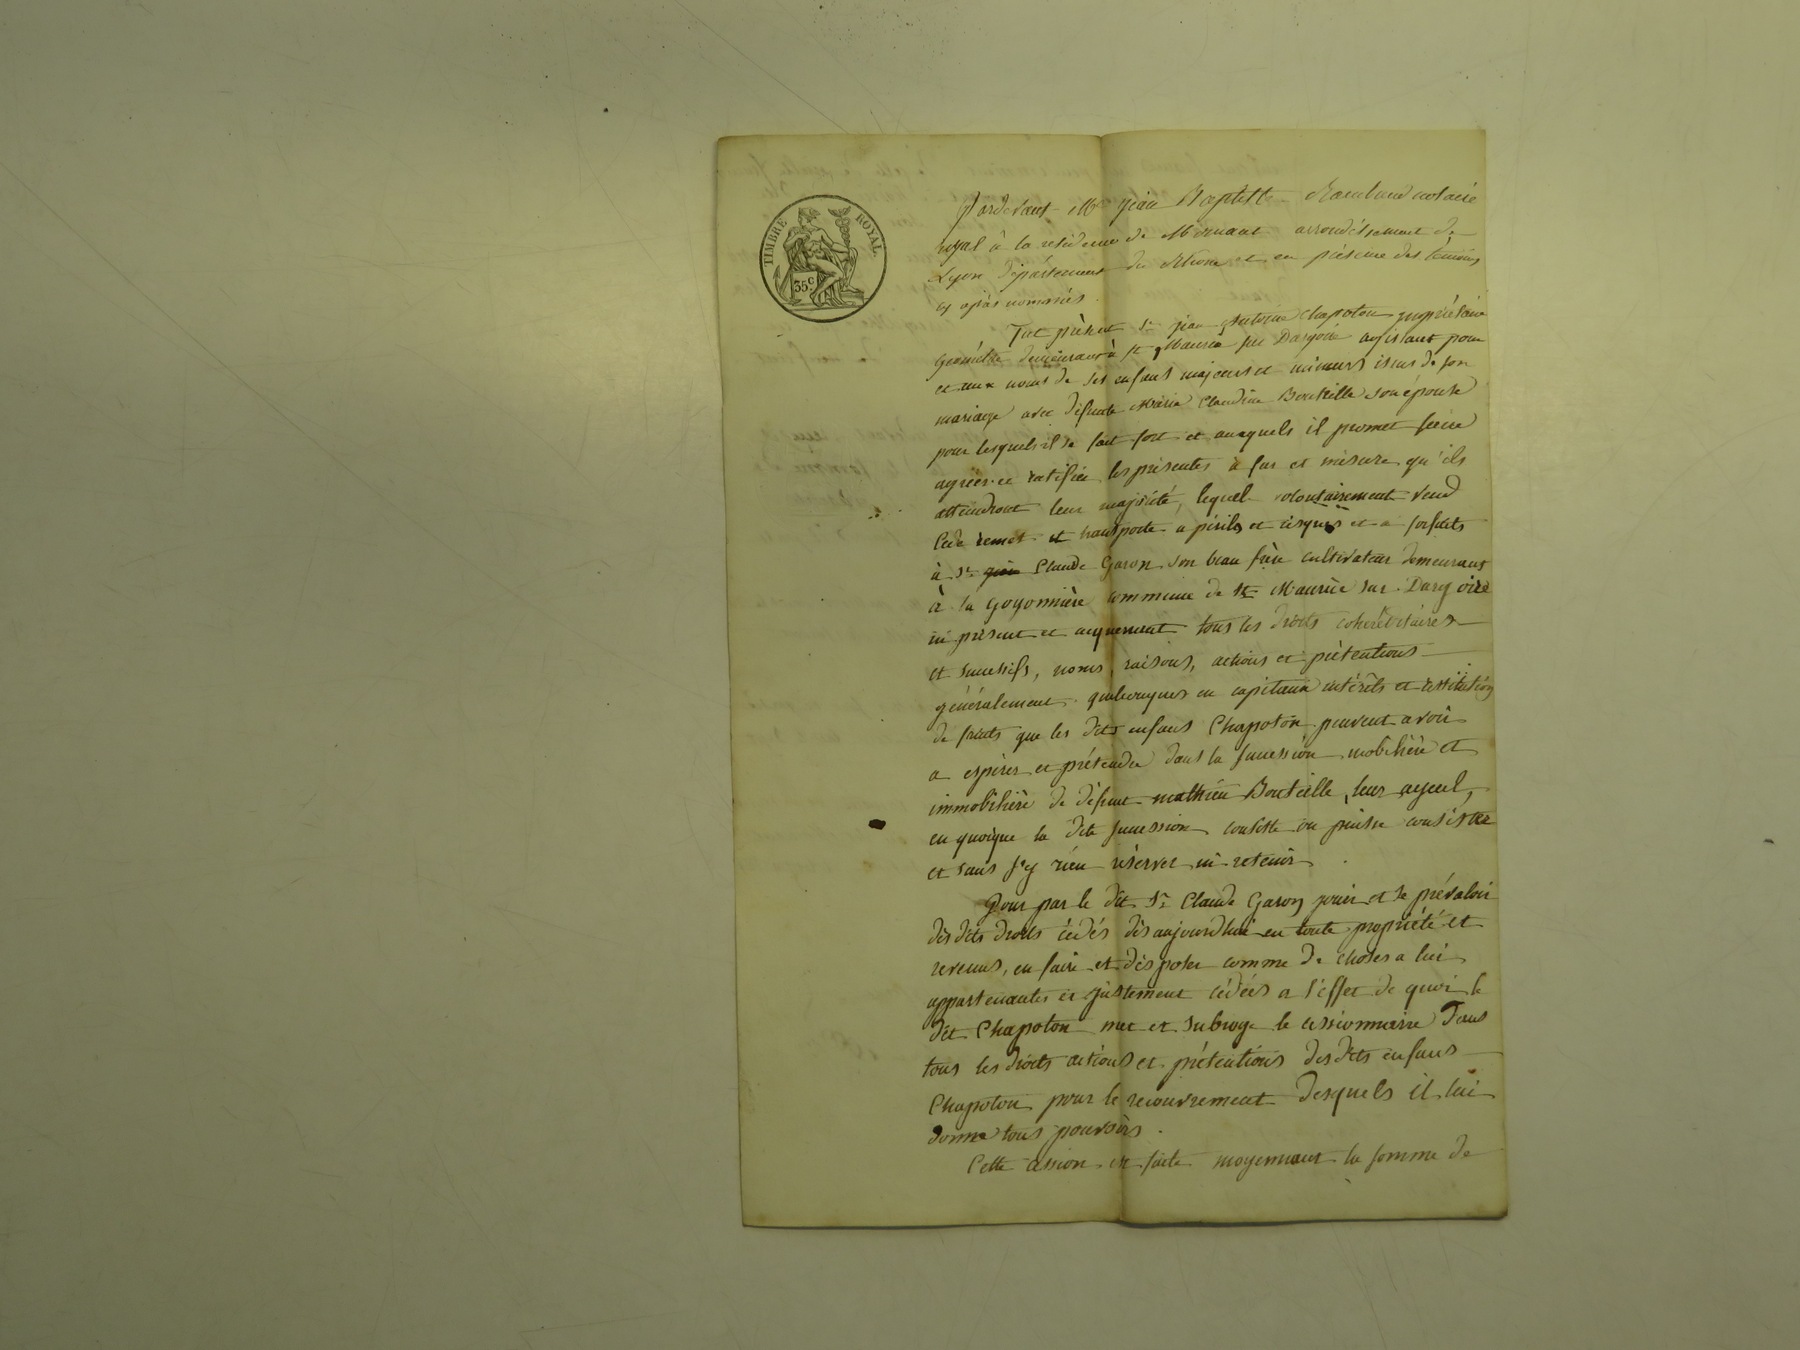 TIMBRE ROYAL
35 c.
Pardevant Me jean Baptiste Rambaud notaire
royal à la résidence de Mornant arrondissement de
Lyon département du Rhône et en présence des témoins
cy après nommés.
Fut présent Sr jean Antoine Chapoton propriétaire
géomètre demeurant à St Maurice sur Dargoire agissant pour
et aux noms de ses enfans majeurs et mineurs issus de son
mariage avec défunte Marie Claudine Bouteille son épouse
pour lesquels il se fait fort et auxquels il promet faire
agréer et ratifier les présentes à fur et mesure qu'ils
atteindront leur majorité, lequel volontairement vend
cède remet et transporte a périls et risques et a forfaits
à Sr Claude Garon son beau frère cultivateur demeurant
à la Goyonnière commune de St Maurice sur Dargoire
ici présent et acquerrant tous les droits cohéréditaires
et successifs, noms, raisons, actions et prétentions
généralement quelconques en capitaux intérêts et restitution
de fruits que les dits enfans Chapoton peuvent avoir
a espérer et prétendre dans la succession mobilière et
immobilière de défunt mathieu Bouteille, leur ayeul,
en quoique la dite succession consiste ou puisse consister
et sans s'y rien réserver ni retenir.
Pour par le dit Sr Claude Garon jouir et se prévaloir
des dits droits cédés dès aujourdhui en toute propriété et
revenus, en faire et disposer comme de choses a lui
appartenantes et justement cédées a l'effet de quoi le
dit Chapoton met et subroge le cessionnaire dans
tous les droits actions et prétentions desdits enfans
Chapoton pour le recouvrement desquels il lui
donne tous pouvoirs.
Cette cession est faite moyennant la somme de